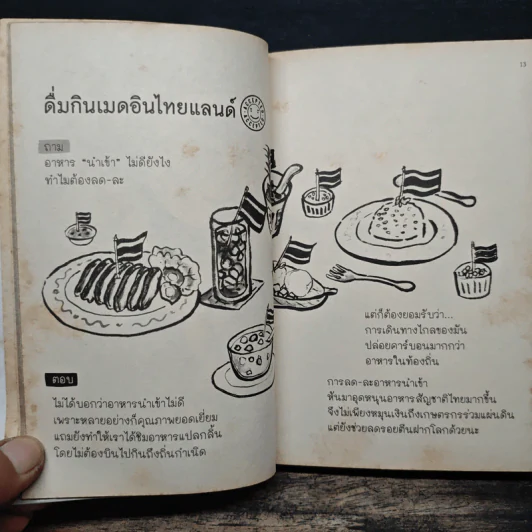 13
ดื่มกินเมดอินไทยแลนด์
ถาม
อาหาร “นำเข้า” ไม่ดียังไง
ทำไมต้องลด-ละ
ตอบ
ไม่ได้บอกว่าอาหารนำเข้าไม่ดี
เพราะหลายอย่างก็คุณภาพยอดเยี่ยม
แถมยังทำให้เราได้ชิมอาหารแปลกลิ้น
โดยไม่ต้องบินไปกินถึงถิ่นกำเนิด
แต่ก็ต้องยอมรับว่า...
การเดินทางไกลของมัน
ปล่อยคาร์บอนมากกว่า
อาหารในท้องถิ่น
การลด-ละอาหารนำเข้า
หันมาอุดหนุนอาหารสัญชาติไทยมากขึ้น
จึงไม่เพียงหมุนเงินถึงเกษตรกรร่วมแผ่นดิน
แต่ยังช่วยลดรอยตีนฝากโลกด้วยนะ